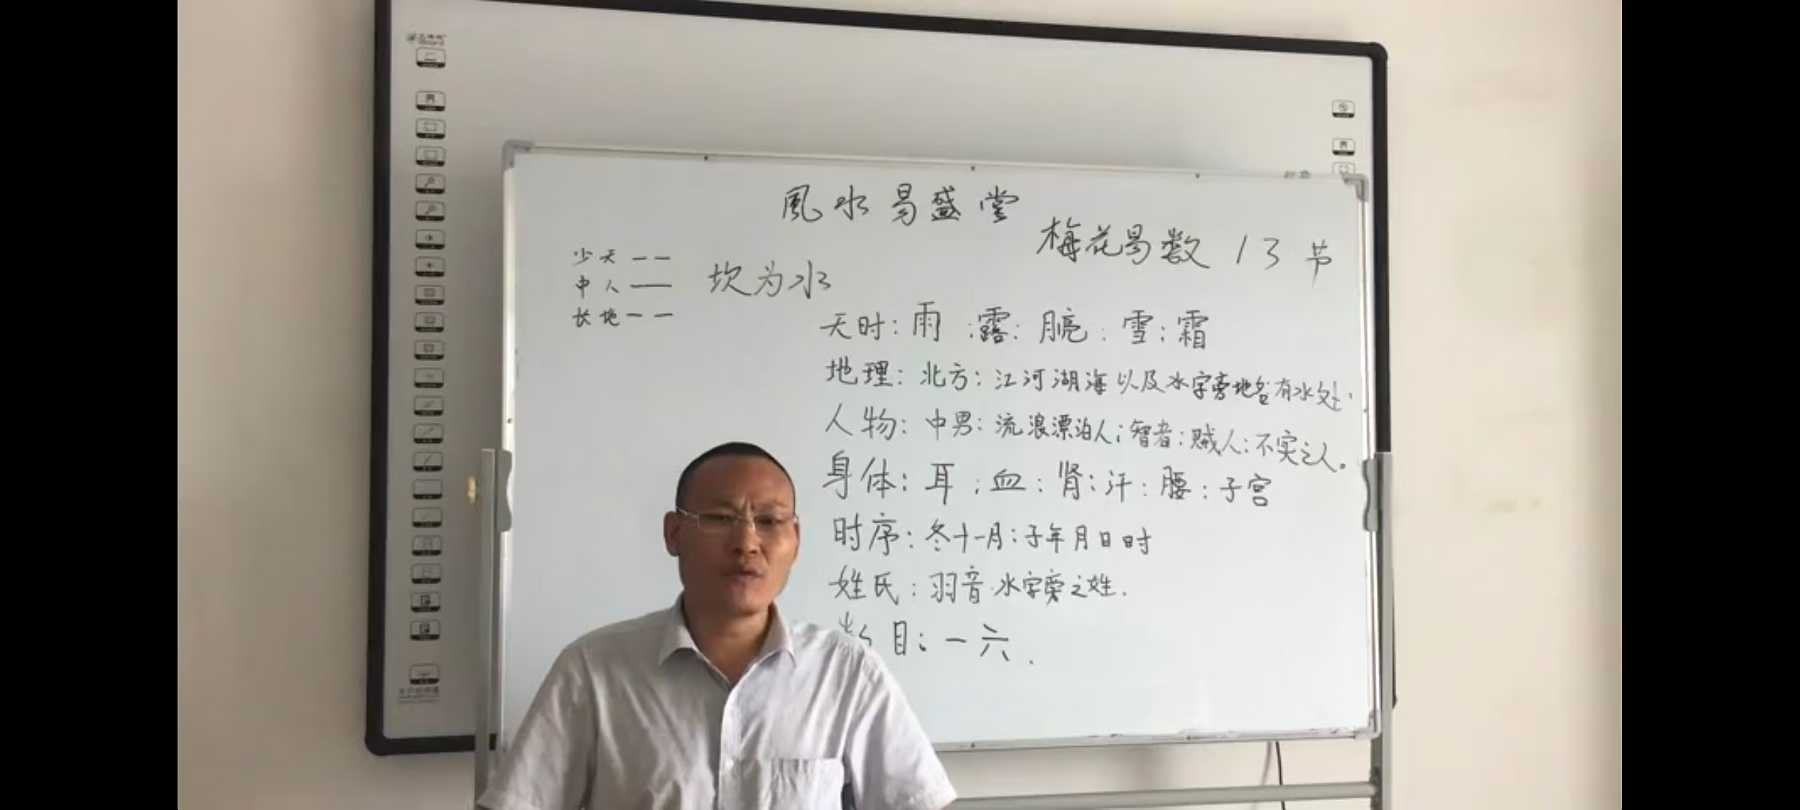 風水易盛堂
梅花易数 13 节
少天
中人
长地
坎为水
天时：雨；露；月亮；雪；霜
地理：北方；江河湖海以及水字旁地名有水处．
人物：中男；流浪漂泊人；智者；贼人；不实之人。
身体：耳；血；肾；汗；腰；子宫
时序：冬十一月；子年月日时
姓氏：羽音．水字旁之姓．
目：一六．